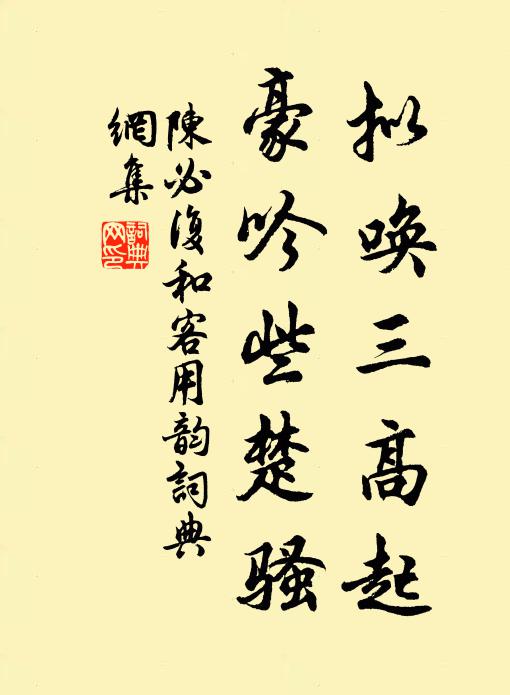 拟唤三高起
豪吟些楚骚
陳必復和客用韵詞典
網集
詞典网印